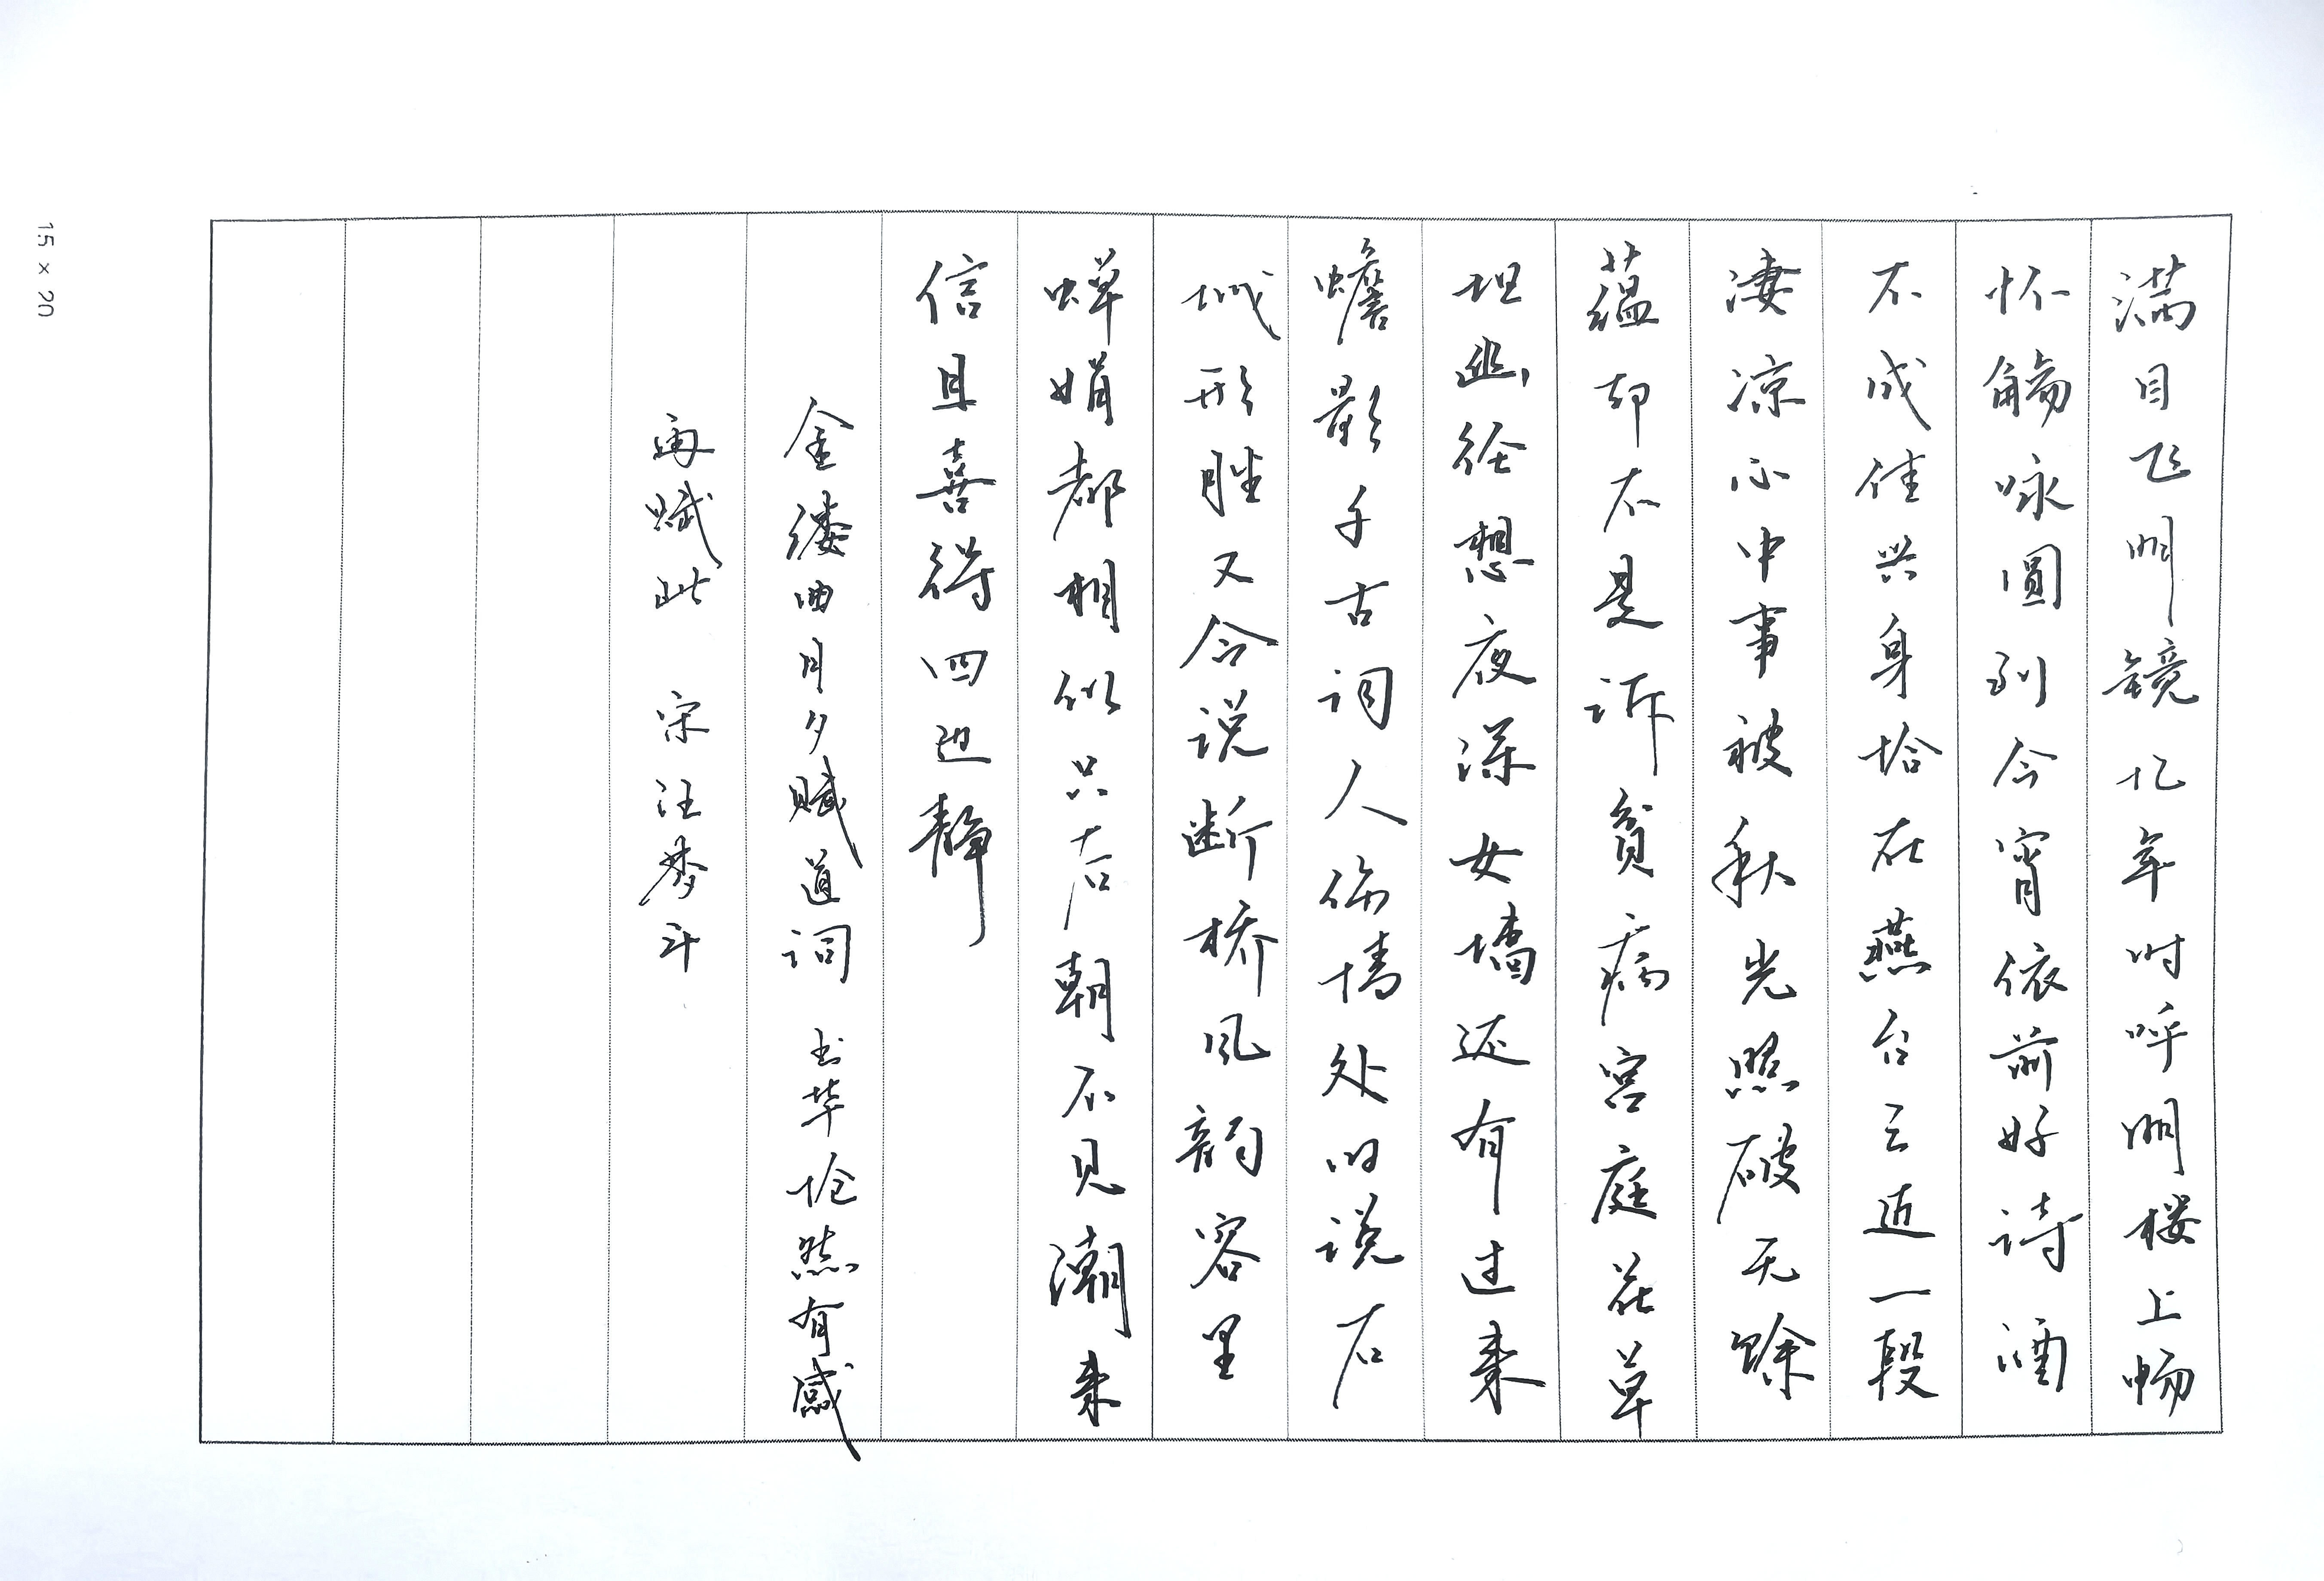 满目飞明镜忆年时呼朋楼上畅
怀觞咏圆到今宵依前好诗酒
不成佳兴身恰在燕台云近一段
凄凉心中事被秋光照破无馀
蕴却不是诉贫病宫庭花草
埋幽径想夜深女墙还有过来
蟾影千古词人伤情处旧说石
城形胜又今说断桥风韵客里
婵娟都相似只后朝不见潮来
信且喜得四边静
金缕曲月夕赋道词 书毕怆然有感
再赋此 宋汪梦斗
15 × 20